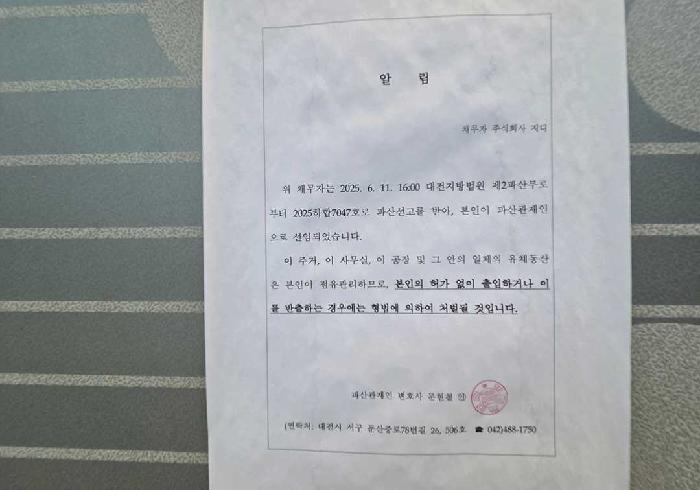 알 림
채무자 주식회사 지디
위 채무자는 2025. 6. 11. 16:00 대전지방법원 제2파산부로
부터 2025하합7047호로 파산선고를 받아, 본인이 파산관재인
으로 선임되었습니다.
이 주거, 이 사무실, 이 공장 및 그 안의 일체의 유체동산
은 본인이 점유관리하므로, 본인의 허가 없이 출입하거나 이
를 반출하는 경우에는 형법에 의하여 처벌될 것입니다.
파산관재인 변호사 문현철 ㊞
(연락처: 대전시 서구 둔산중로78번길 26, 506호 ☎ 042)488-1750